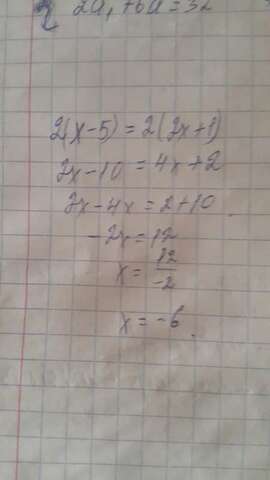 2a₁+6d=32
2(x-5)=2(2x+1)
2x-10=4x+2
2x-4x=2+10
-2x=12
x=12/-2
x=-6.